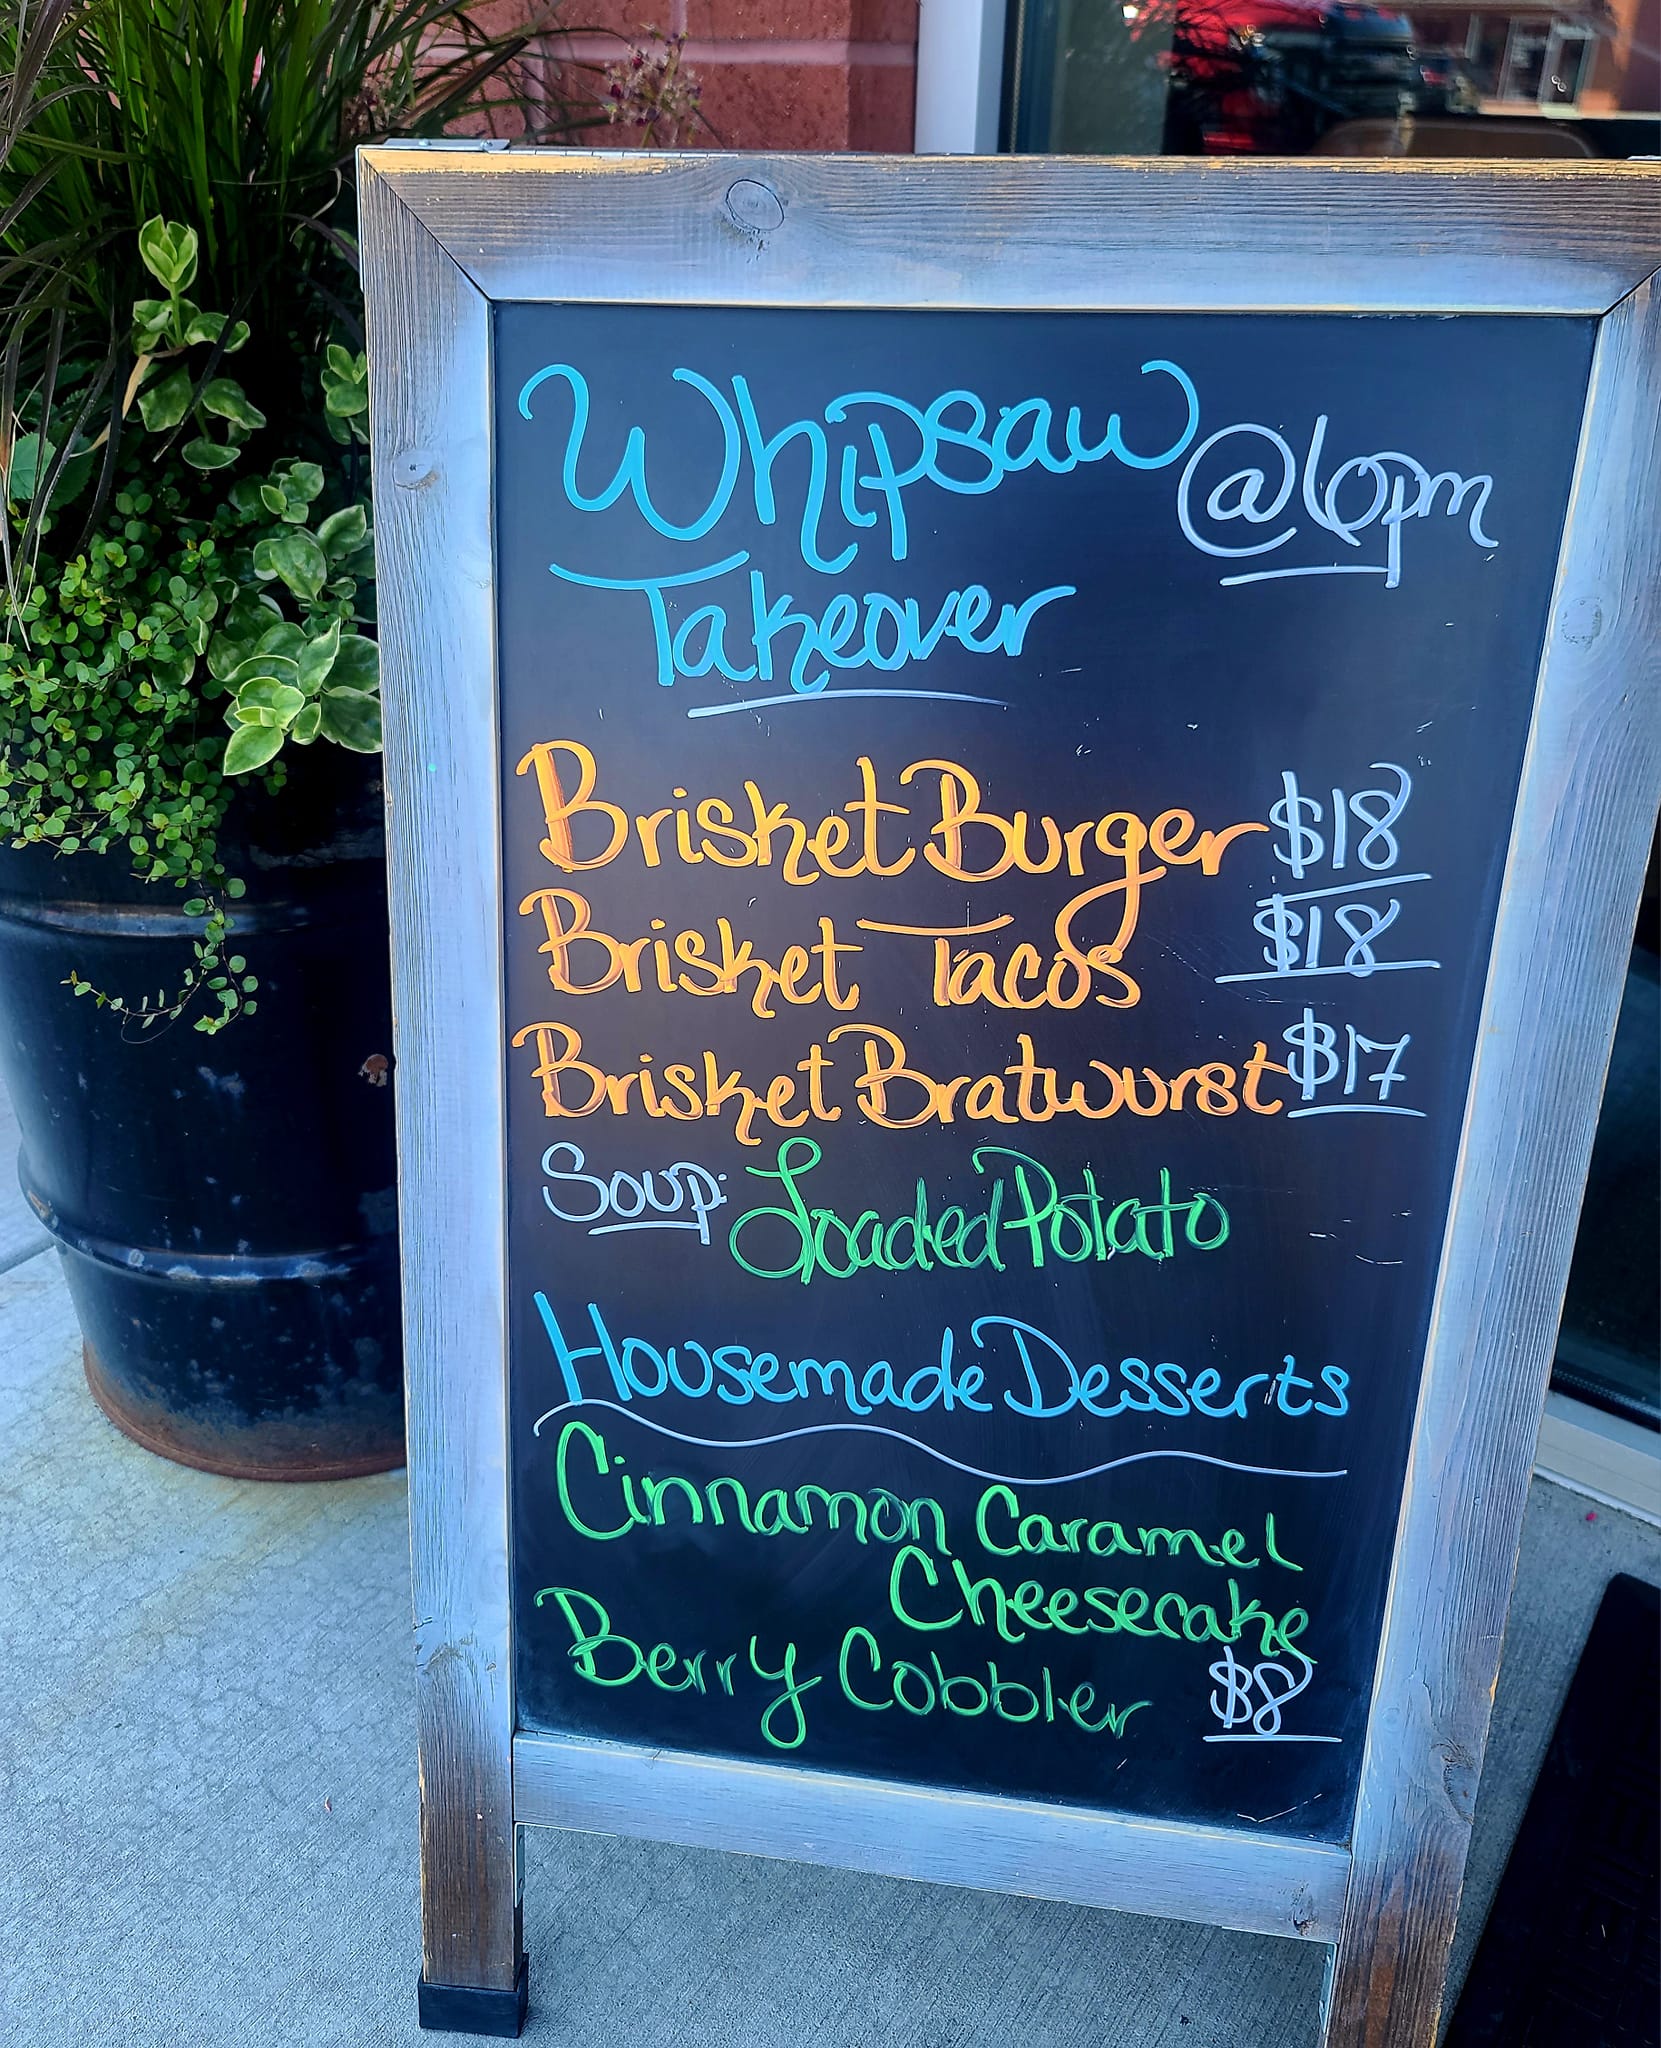 Whipsaw @6pm
Takeover
Brisket Burger $18
Brisket Tacos $18
Brisket Bratwurst $17
Soup: Loaded Potato
Housemade Desserts
Cinnamon Caramel
Cheesecake
Berry Cobbler $8